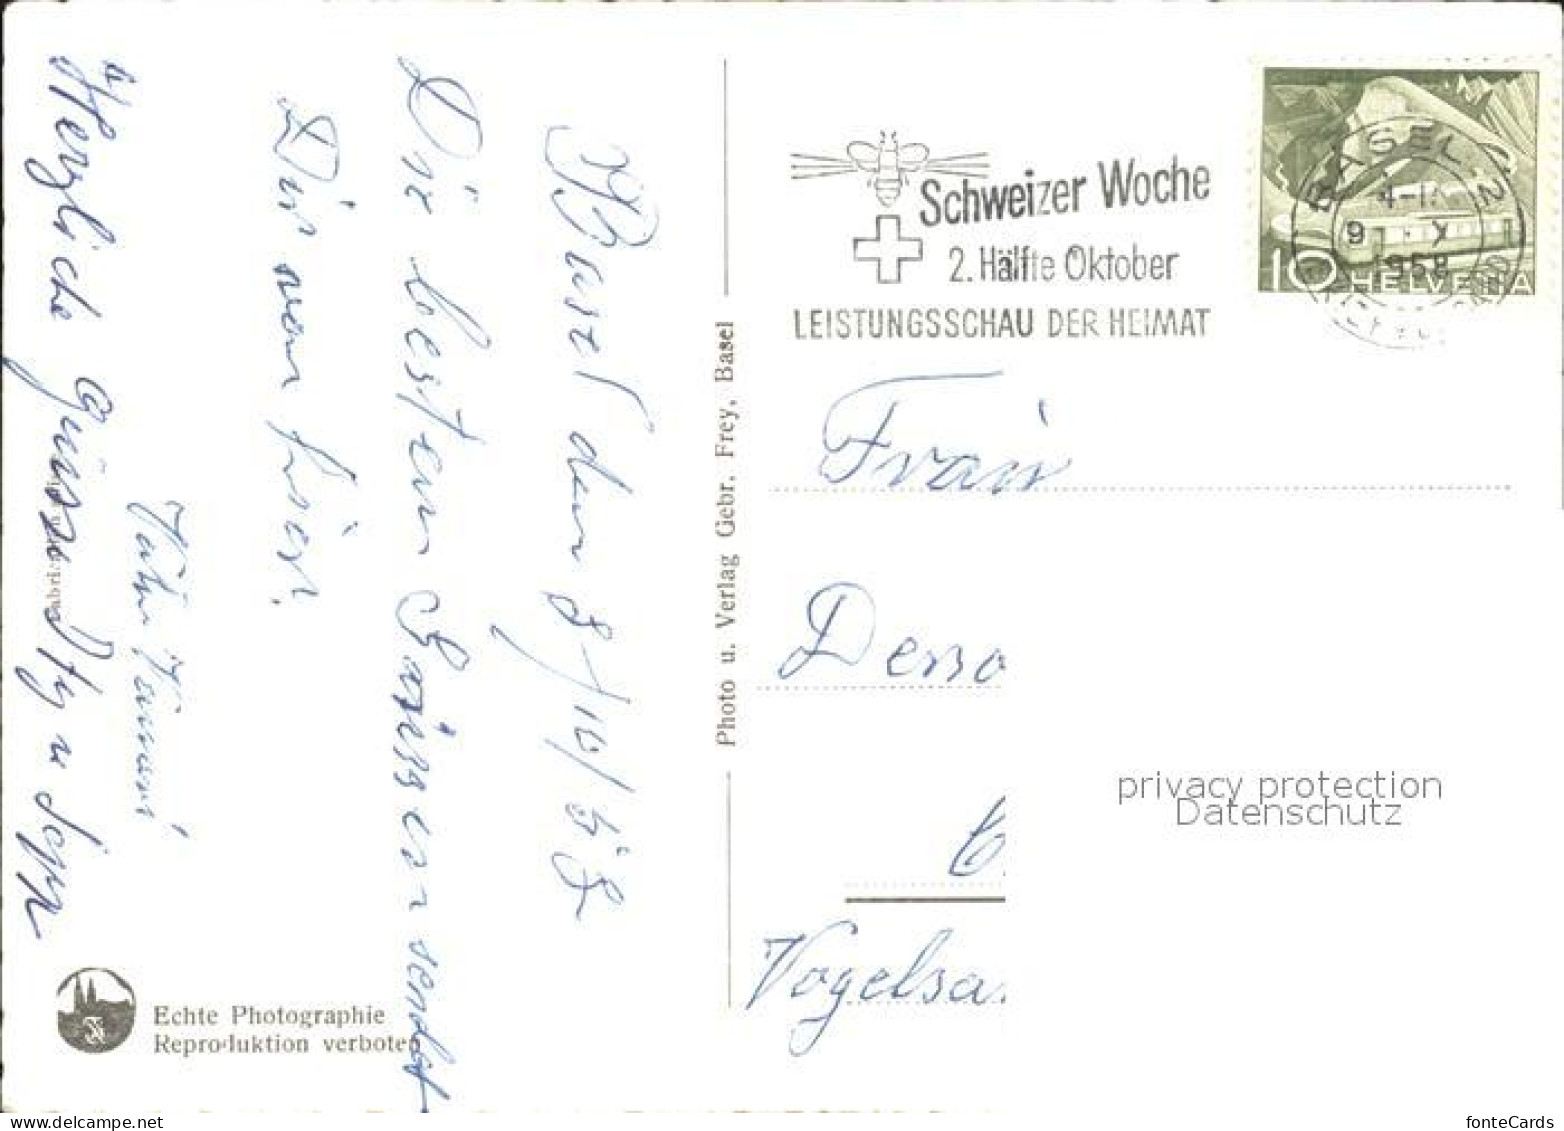 Basel den 8/10/58
Die besten Grüsse sendet
Dir von hier.
Herzliche Grüsse
Schweizer Woche
2. Hälfte Oktober
LEISTUNGSSCHAU DER HEIMAT
BASEL 2
9 X
1958
10 HELVETIA
Photo u. Verlag Gebr. Frey, Basel
Frau
Vogelsa
privacy protection
Datenschutz
Echte Photographie
Reproduktion verboten
www.ansichtskartenversand.com
fonteCards